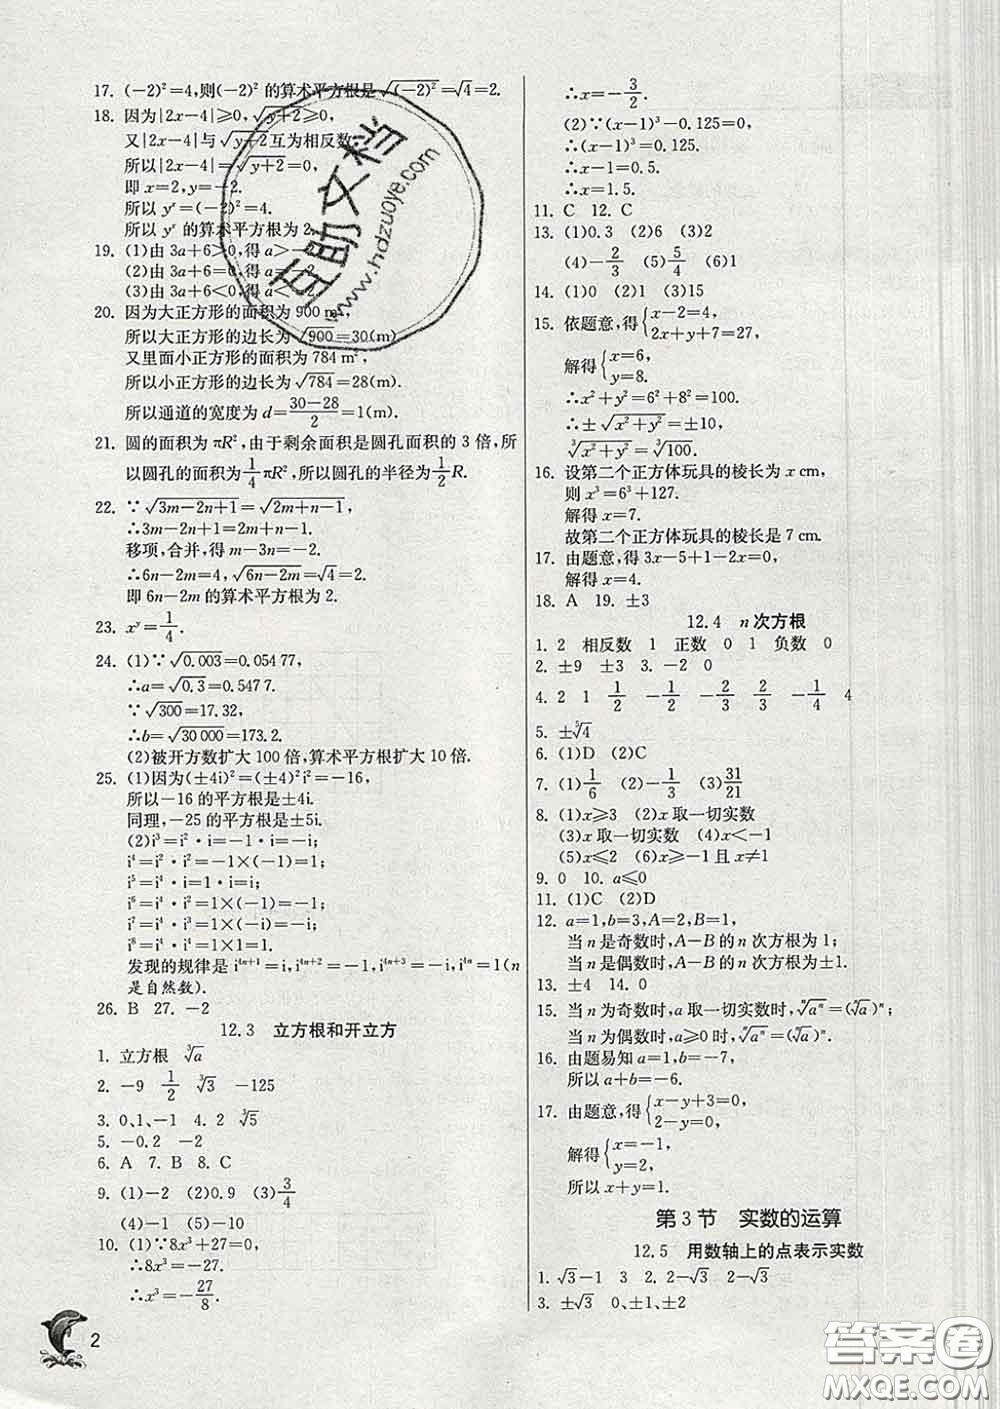 17. (-2)²=4,则(-2)² 的算术平方根是√(-2)²=√4=2.
18. 因为|2x-4|≥0,√y+2≥0,
又|2x-4|与√y+2互为相反数,
所以|2x-4|=√y+2=0,
即 x=2,y=-2.
所以 yˣ=(-2)²=4.
所以 yˣ 的算术平方根为 2.
19. (1)由 3a+6>0,得 a>-2.
(2)由 3a+6=0,得 a=-2.
(3)由 3a+6<0,得 a<-2.
20. 因为大正方形的面积为 900 m²,
所以大正方形的边长为√900=30(m).
又里面小正方形的面积为 784 m²,
所以小正方形的边长为√784=28(m).
所以通道的宽度为 d=(30-28)/2=1(m).
21. 圆的面积为 πR²,由于剩余面积是圆孔面积的 3 倍,所
以圆孔的面积为1/4πR²,所以圆孔的半径为1/2R.
22. ∵√3m-2n+1=√2m+n-1,
∴3m-2n+1=2m+n-1.
移项,合并,得 m-3n=-2.
∴6n-2m=4,√6n-2m=√4=2.
即 6n-2m 的算术平方根为 2.
23. xʸ=1/4.
24. (1)∵√0.003=0.054 77,
∴a=√0.3=0.547 7.
∵√300=17.32,
∴b=√30 000=173.2.
(2)被开方数扩大 100 倍,算术平方根扩大 10 倍.
25. (1)因为(±4i)²=(±4)²i²=-16,
所以-16 的平方根是±4i.
同理,-25 的平方根是±5i.
(2)i³=i²·i=-1·i=-i;
i⁴=i²·i²=-1×(-1)=1;
i⁵=i⁴·i=1·i=i;
i⁶=i⁴·i²=1×(-1)=-1;
i⁷=i⁴·i³=1×(-i)=-i;
i⁸=i⁴·i⁴=1×1=1.
发现的规律是 i⁴ⁿ⁺¹=i,i⁴ⁿ⁺²=-1,i⁴ⁿ⁺³=-i,i⁴ⁿ=1(n
是自然数).
26. B 27. -2
12.3 立方根和开立方
1. 立方根 ³√a
2. -9 1/2 ³√3 -125
3. 0、1、-1 4. 2 ³√5
5. -0.2 -2
6. A 7. B 8. C
9. (1)-2 (2)0.9 (3)3/4
(4)-1 (5)-10
10. (1)∵8x³+27=0,
∴8x³=-27.
∴x³=-27/8.
2
∴x=-3/2.
(2)∵(x-1)³-0.125=0,
∴(x-1)³=0.125.
∴x-1=0.5.
∴x=1.5.
11. C 12. C
13. (1)0.3 (2)6 (3)2
(4)-2/3 (5)5/4 (6)1
14. (1)0 (2)1 (3)15
15. 依题意,得{x-2=4,
2x+y+7=27,
解得{x=6,
y=8.
∴x²+y²=6²+8²=100.
∴±√x²+y²=±10,
³√x²+y²=³√100.
16. 设第二个正方体玩具的棱长为 x cm,
则 x³=6³+127.
解得 x=7.
故第二个正方体玩具的棱长是 7 cm.
17. 由题意,得 3x-5+1-2x=0,
解得 x=4.
18. A 19. ±3
12.4 n 次方根
1. 2 相反数 1 正数 0 1 负数 0
2. ±9 ±3 3. -2 0
4. 2 1 1/2 -1/2 -2/3 2/3 -1/4 4
5. ±⁵√4
6. (1)D (2)C
7. (1)1/6 (2)-1/3 (3)31/21
8. (1)x≥3 (2)x 取一切实数
(3)x 取一切实数 (4)x<-1
(5)x≤2 (6)x≥-1 且 x≠1
9. 0 10. a≤0
11. (1)C (2)D
12. a=1,b=3,A=2,B=1,
当 n 是奇数时,A-B 的 n 次方根为 1;
当 n 是偶数时,A-B 的 n 次方根为±1.
13. ±4 14. 0
15. 当 n 为奇数时,a 取一切实数时,ⁿ√aⁿ=(ⁿ√a)ⁿ;
当 n 为偶数时,a≥0 时,ⁿ√aⁿ=(ⁿ√a)ⁿ.
16. 由题易知 a=1,b=-7,
所以 a+b=-6.
17. 由题意,得{x-y+3=0,
2-y=0,
解得{x=-1,
y=2,
所以 x+y=1.
第 3 节 实数的运算
12.5 用数轴上的点表示实数
1. √3-1 3 2. 2-√3 2-√3
3. ±√3 0、±1、±2
互助文档
www.hdzuoye.com
答案圈
MXQE.COM